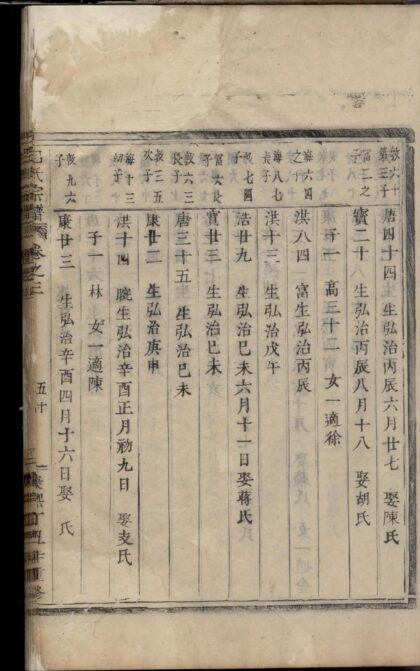 敦六十第三子 唐四十四 生弘治丙辰六月廿七 娶陳氏
富二之子 寶二十八 生弘治丙辰八月十八 娶胡氏
子一 高三十二 女一適徐
海六四之 洪八四 富生弘治丙辰
海八七長子 洪十三 生弘治戊午
敦七四子 浩廿九 生弘治己未六月十一日娶蔣氏
富六長子 寶廿三 生弘治己未
敦六三長子 唐三十五 生弘治己未
敦三五次子 康廿二 生弘治庚申
海十三幼子 洪十四 曉生弘治辛酉正月初九日 娶支氏
子一六林 女一適陳
敦九六子 康廿三 生弘治辛酉四月十六日娶 氏
氏宗譜 卷之三 五十